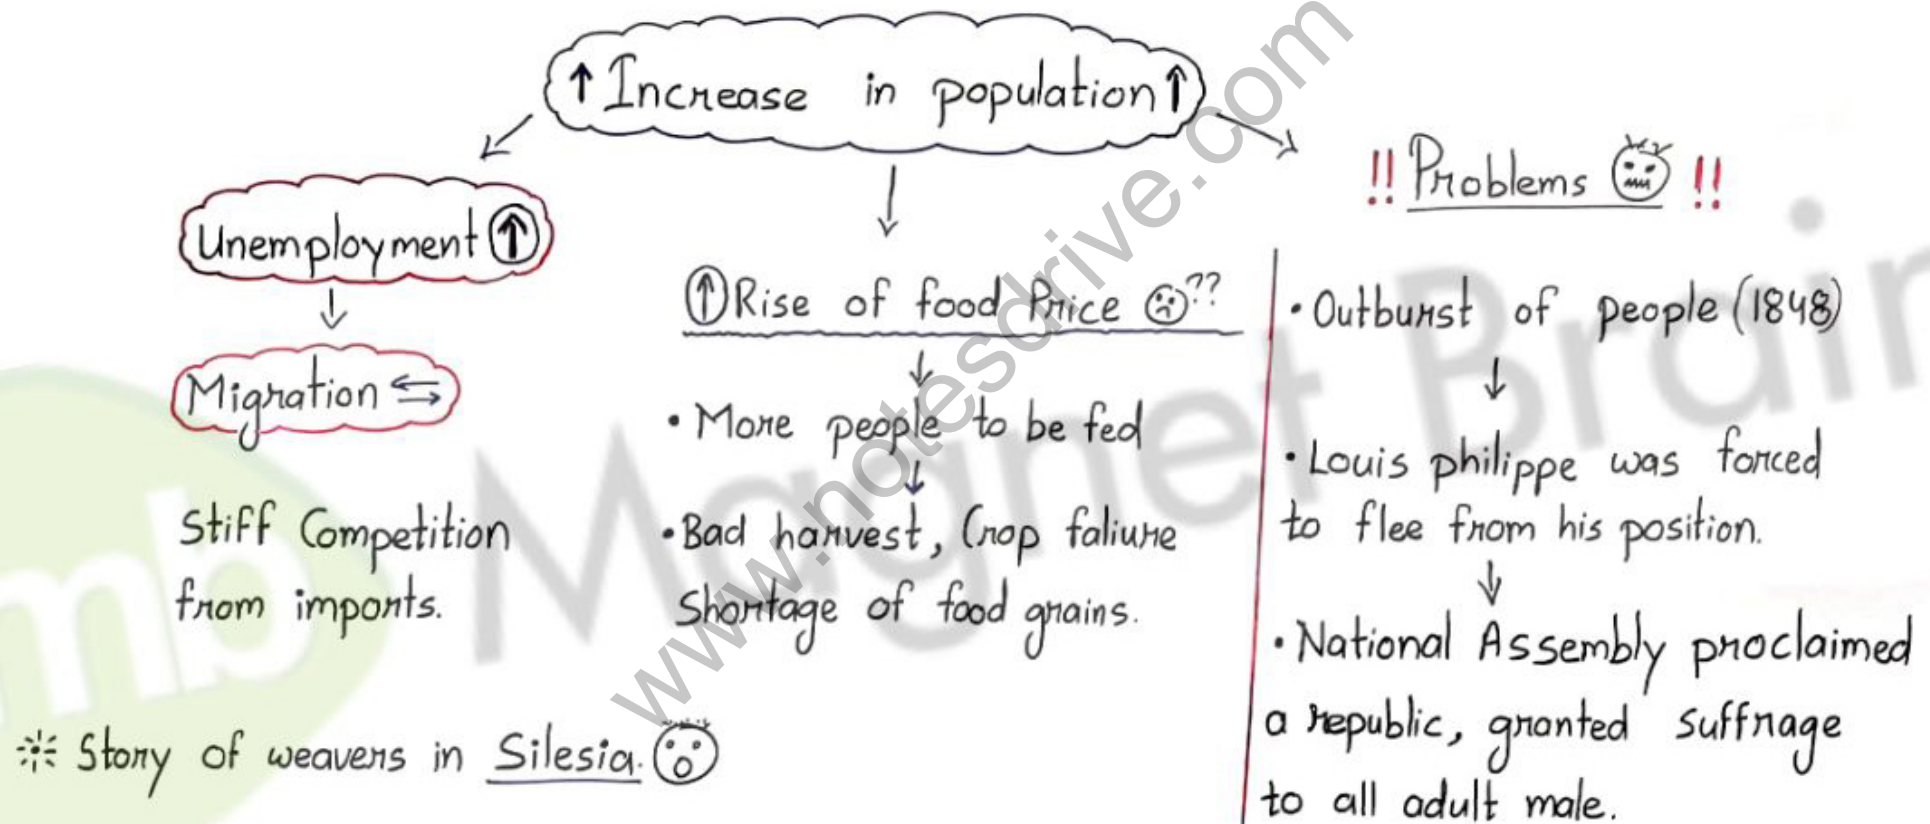 ↑ Increase in population ↑
Unemployment ↑
Migration ⇆
Stiff Competition
from imports.
↑ Rise of food Price ??
• More people to be fed
• Bad harvest, Crop faliure
Shortage of food grains.
!! Problems !!
• Outburst of people (1848)
• Louis philippe was forced
to flee from his position.
• National Assembly proclaimed
a republic, granted suffrage
to all adult male.
Story of weavers in Silesia.
www.notesdrive.com
mb Magnet Brain